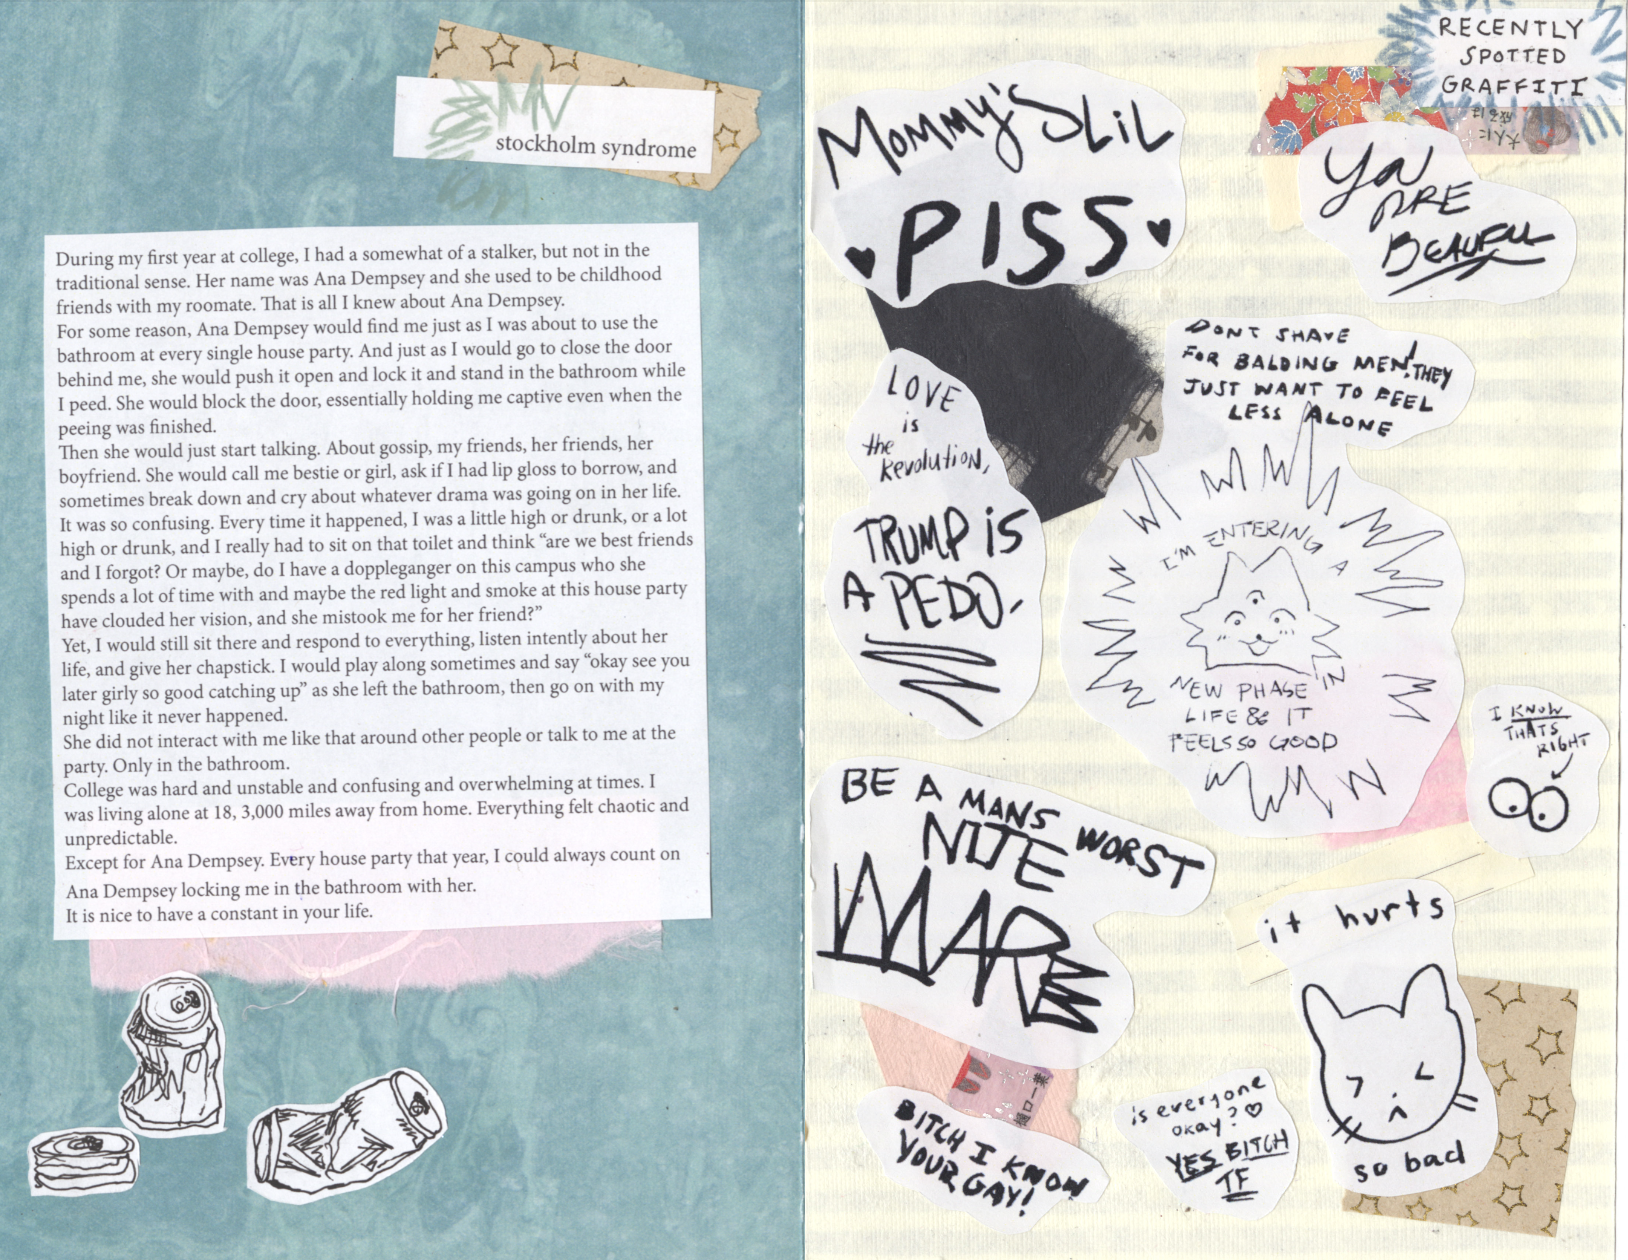 stockholm syndrome
During my first year at college, I had a somewhat of a stalker, but not in the
traditional sense. Her name was Ana Dempsey and she used to be childhood
friends with my roomate. That is all I knew about Ana Dempsey.
For some reason, Ana Dempsey would find me just as I was about to use the
bathroom at every single house party. And just as I would go to close the door
behind me, she would push it open and lock it and stand in the bathroom while
I peed. She would block the door, essentially holding me captive even when the
peeing was finished.
Then she would just start talking. About gossip, my friends, her friends, her
boyfriend. She would call me bestie or girl, ask if I had lip gloss to borrow, and
sometimes break down and cry about whatever drama was going on in her life.
It was so confusing. Every time it happened, I was a little high or drunk, or a lot
high or drunk, and I really had to sit on that toilet and think “are we best friends
and I forgot? Or maybe, do I have a doppleganger on this campus who she
spends a lot of time with and maybe the red light and smoke at this house party
have clouded her vision, and she mistook me for her friend?”
Yet, I would still sit there and respond to everything, listen intently about her
life, and give her chapstick. I would play along sometimes and say “okay see you
later girly so good catching up” as she left the bathroom, then go on with my
night like it never happened.
She did not interact with me like that around other people or talk to me at the
party. Only in the bathroom.
College was hard and unstable and confusing and overwhelming at times. I
was living alone at 18, 3,000 miles away from home. Everything felt chaotic and
unpredictable.
Except for Ana Dempsey. Every house party that year, I could always count on
Ana Dempsey locking me in the bathroom with her.
It is nice to have a constant in your life.
RECENTLY
SPOTTED
GRAFFITI
MOMMY'S LiL
PISS
YOU
ARE
BEAUFUL
DONT SHAVE
FOR BALDING MEN! THEY
JUST WANT TO FEEL
LESS ALONE
LOVE
is
the
Revolution,
TRUMP iS
A PEDO.
I'M ENTERING A
NEW PHASE IN
LIFE & IT
FEELS SO GOOD
I KNOW
THATS
RIGHT
BE A MANS WORST
NITE
MARE
it hurts
so bad
BITCH I KNOW
YOUR GAY!
is everyone
okay?
YES BITCH
TF